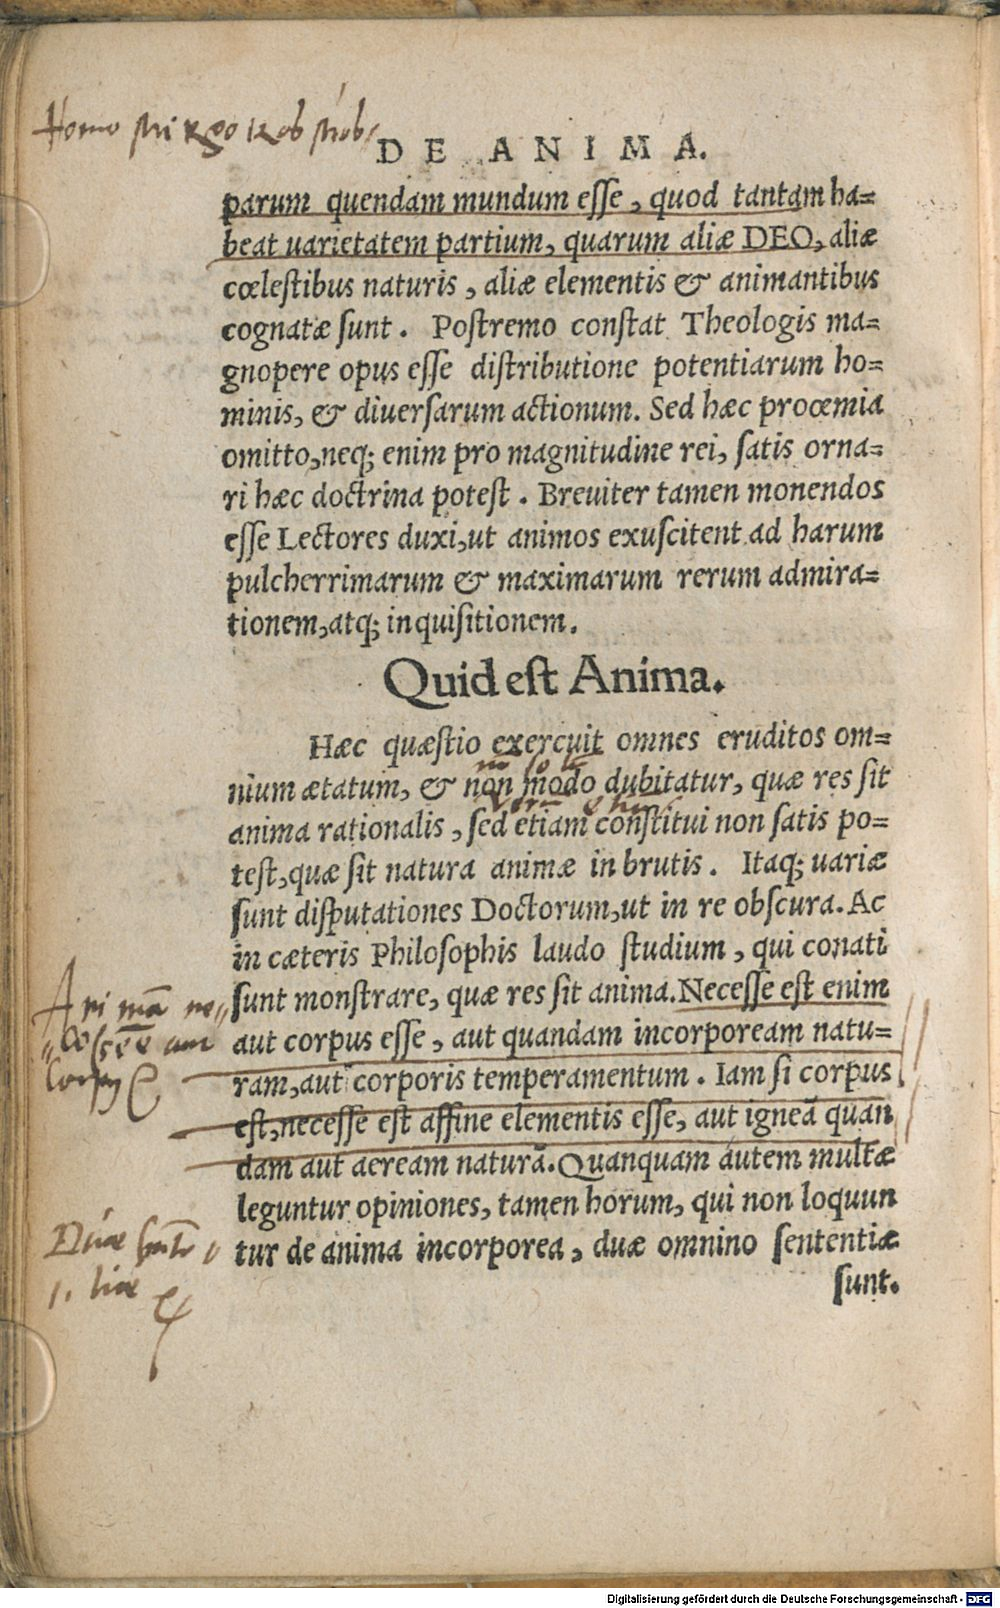 Homo
DE ANIMA.
parum quendam mundum eſſe, quod tantam ha=
beat uarietatem partium, quarum aliæ DEO, aliæ
cœleſtibus naturis, aliæ elementis & animantibus
cognatæ ſunt. Poſtremo conſtat Theologis ma=
gnopere opus eſſe diſtributione potentiarum ho=
minis, & diuerſarum actionum. Sed hæc proœmia
omitto, neq; enim pro magnitudine rei, ſatis orna=
ri hæc doctrina poteſt. Breuiter tamen monendos
eſſe Lectores duxi, ut animos exuſcitent ad harum
pulcherrimarum & maximarum rerum admira=
tionem, atq; inquiſitionem.
Quid eſt Anima.
Hæc quæſtio exercuit omnes eruditos om=
nium ætatum, & non modo dubitatur, quæ res ſit
anima rationalis, ſed etiam conſtitui non ſatis po=
teſt, quæ ſit natura animæ in brutis. Itaq; uariæ
ſunt diſputationes Doctorum, ut in re obſcura. Ac
in cæteris Philoſophis laudo ſtudium, qui conati
ſunt monſtrare, quæ res ſit anima. Neceſſe eſt enim
aut corpus eſſe, aut quandam incorpoream natu=
ram, aut corporis temperamentum. Iam ſi corpus
eſt, neceſſe eſt affine elementis eſſe, aut igneã quan
dam aut aeream naturã. Quanquam autem multæ
leguntur opiniones, tamen horum, qui non loquun
tur de anima incorporea, duæ omnino ſententiæ
ſunt.
Digitalisierung gefördert durch die Deutsche Forschungsgemeinschaft - DFG